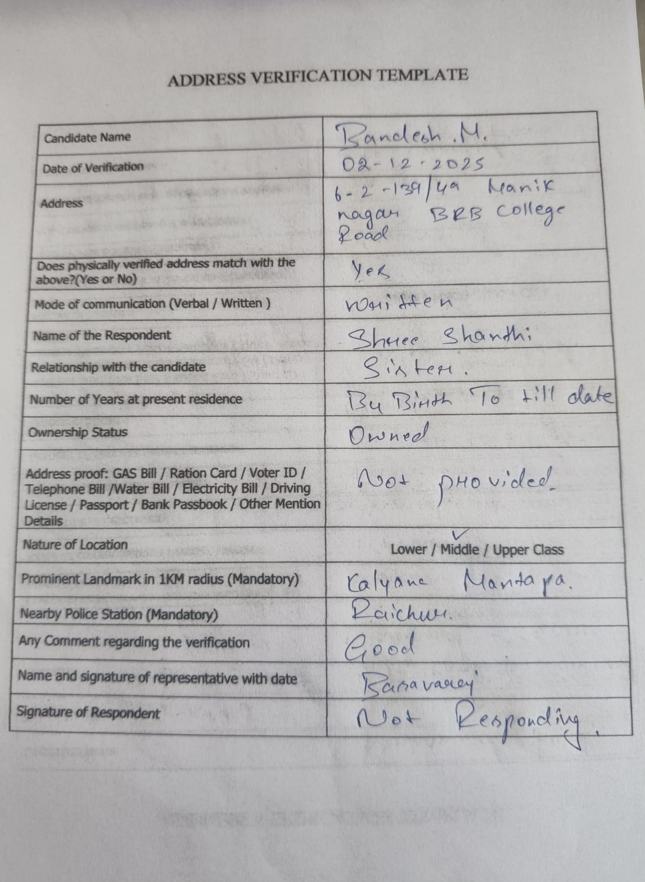 ADDRESS VERIFICATION TEMPLATE
Candidate Name Bandesh .M.
Date of Verification 02-12-2025
Address 6-2-139/49 Manik
nagar BRB College
Road
Does physically verified address match with the
above?(Yes or No) Yes
Mode of communication (Verbal / Written ) written
Name of the Respondent Shree Shanthi
Relationship with the candidate Sister.
Number of Years at present residence By Birth To till date
Ownership Status Owned
Address proof: GAS Bill / Ration Card / Voter ID /
Telephone Bill /Water Bill / Electricity Bill / Driving
License / Passport / Bank Passbook / Other Mention
Details Not provided.
Nature of Location Lower / Middle / Upper Class
Prominent Landmark in 1KM radius (Mandatory) Kalyana Mantapa.
Nearby Police Station (Mandatory) Raichur.
Any Comment regarding the verification Good
Name and signature of representative with date Basavaraj
Signature of Respondent Not Responding.